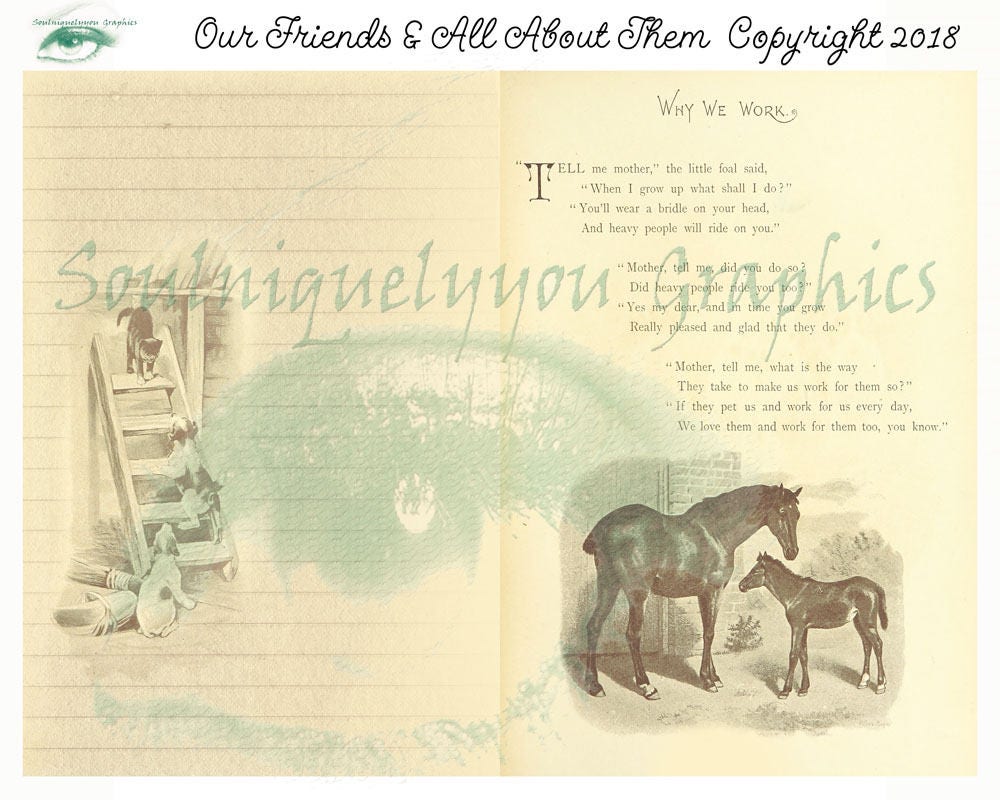 Soulniquelyyou Graphics
Our Friends & All About Them Copyright 2018
Why We Work.
"Tell me mother," the little foal said,
"When I grow up what shall I do?"
"You'll wear a bridle on your head,
And heavy people will ride on you."
Soulniquelyyou Graphics
"Mother, tell me, did you do so?
Did heavy people ride you too?"
"Yes my dear, and in time you grow
Really pleased and glad that they do."
"Mother, tell me, what is the way
They take to make us work for them so?"
"If they pet us and work for us every day,
We love them and work for them too, you know."